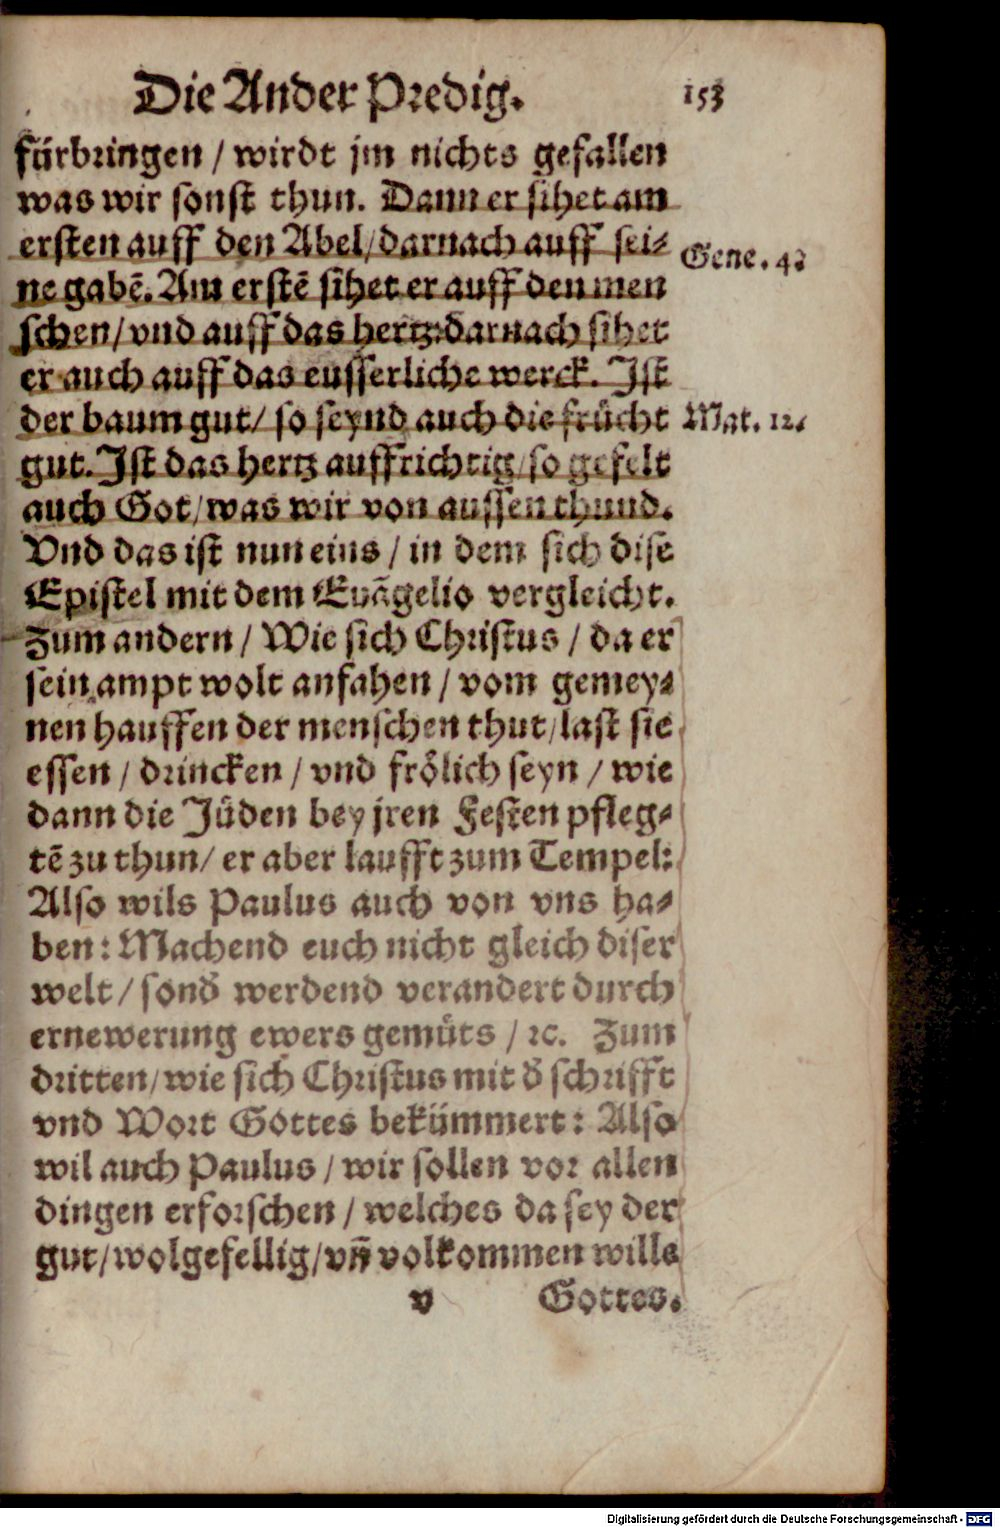 Die Ander Predig. 153
fürbringen / wirdt jm nichts gefallen
was wir sonst thun. Dann er sihet am
ersten auff den Abel / darnach auff sei⸗
ne gabē. Am erstē sihet er auff den men
schen / vnd auff das hertz: darnach sihet
er auch auff das eusserliche werck. Ist
der baum gut / so seynd auch die frücht
gut. Ist das hertz auffrichtig / so gefelt
auch Got / was wir von aussen thund.
Vnd das ist nun eins / in dem sich dise
Epistel mit dem Euāgelio vergleicht.
Zum andern / Wie sich Christus / da er
sein ampt wolt anfahen / vom gemey⸗
nen hauffen der menschen thut / last sie
essen / drincken / vnd frölich seyn / wie
dann die Jüden bey jren Festen pfleg⸗
tē zu thun / er aber laufft zum Tempel:
Also wils Paulus auch von vns ha⸗
ben: Machend euch nicht gleich diser
welt / sonđ werdend verandert durch
ernewerung ewers gemüts / ꝛc. Zum
dritten / wie sich Christus mit đ schrifft
vnd Wort Gottes bekümmert: Also
wil auch Paulus / wir sollen vor allen
dingen erforschen / welches da sey der
gut / wolgefellig / vñ volkommen wille
v Gottes.
Gene. 4.
Mat. 12.
Digitalisierung gefördert durch die Deutsche Forschungsgemeinschaft - DFG